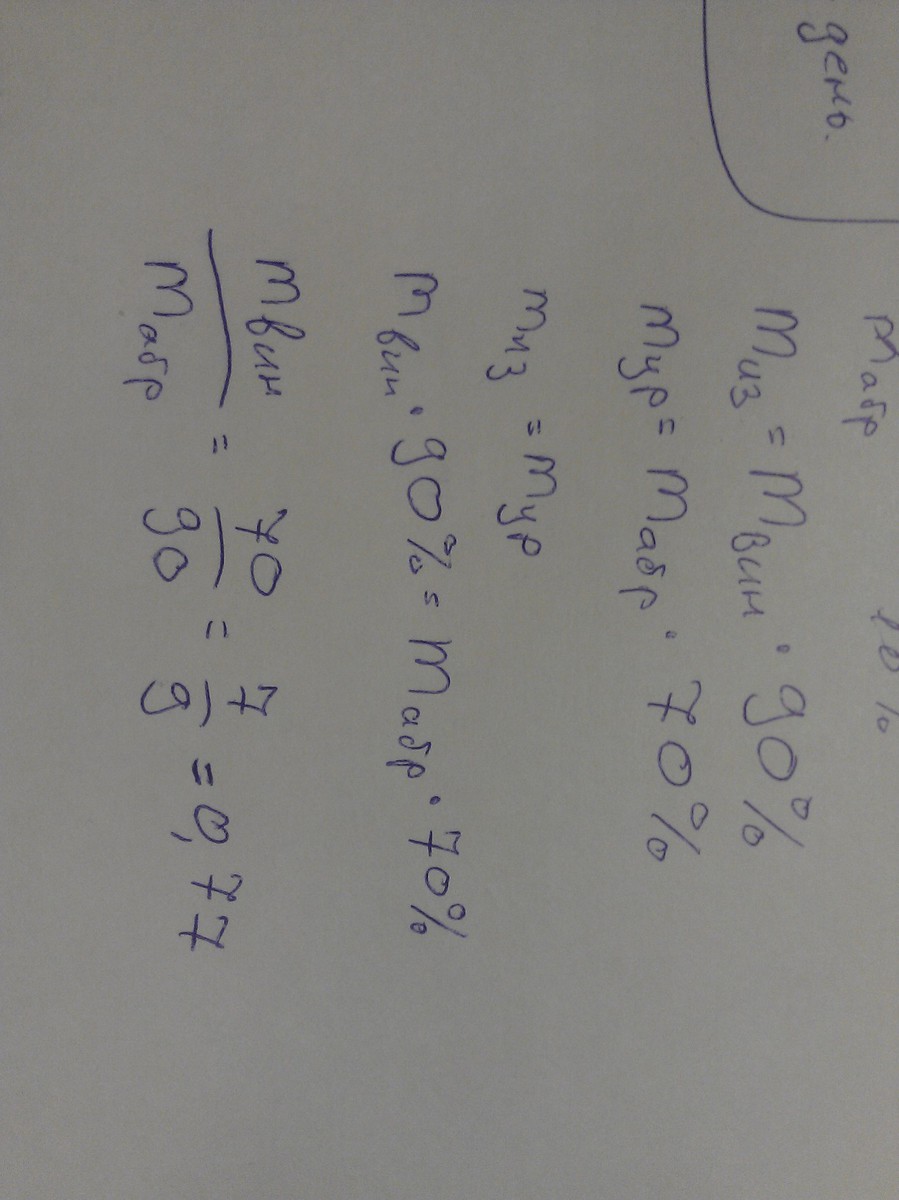 день.
m абр 10%
m из = m вин · 90%
m ур = m абр · 70%
m из = m ур
m вин · 90% = m абр · 70%
m вин / m абр = 70 / 90 = 7 / 9 = 0,77